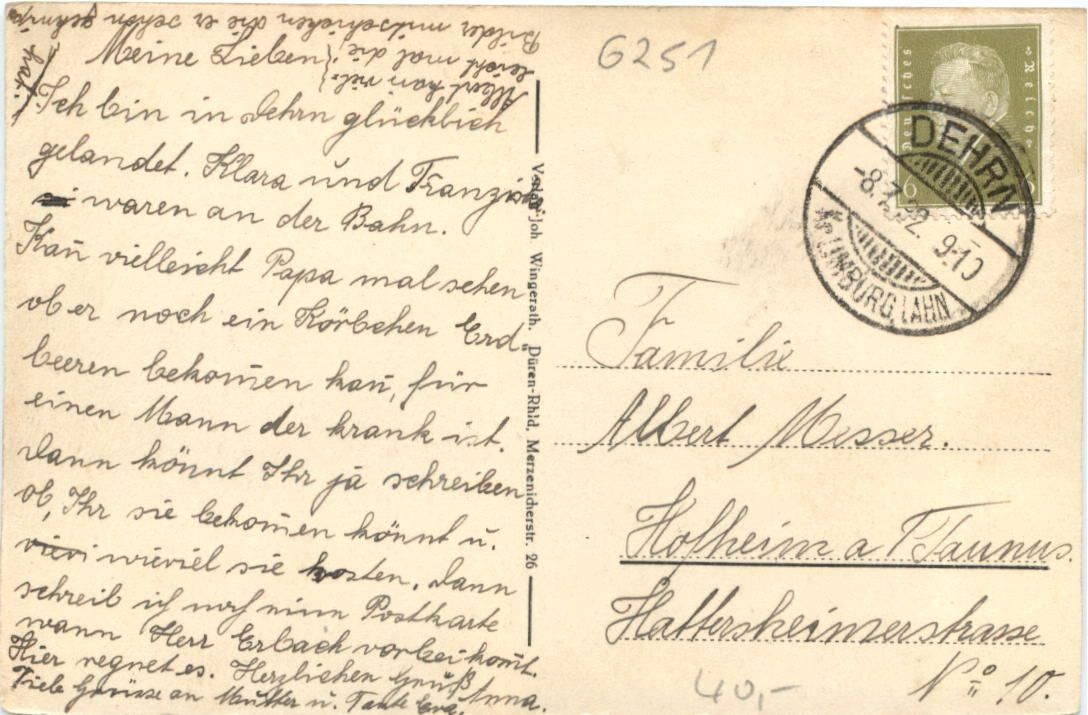 Meine Lieben!
Ich bin in Dehrn glücklich
gelandet. Klara und Franziska
waren an der Bahn.
Kan̄ vielleicht Papa mal sehen
ob er noch ein Körbchen Erd„
beeren bekom̄en kan̄, für
einen Mann der krank ist.
Dann könnt Ihr ja schreiben
ob, Ihr sie bekom̄en könnt u.
wieviel sie kosten. Dann
schreib ich noch eine Postkarte
wann Herr Erbach vorbeikom̄t.
Hier regnet es. Herzlichen Gruß Anna.
Viele Grüsse an Mutter u. Tante Eva.
Albert kan viel„
leicht mal die
Bilder mitschicken die er schön geknipst
hat.
Verlag Joh. Wingerath. Düren-Rhld, Merzenicherstr. 26
6251
Deutsches Reich
6
DEHRN
-8.7.32. 9-10
KR. LIMBURG, LAHN
Familie
Albert Messer.
Hofheim a Taunus.
Hattersheimerstrasse
No 10.
40,-